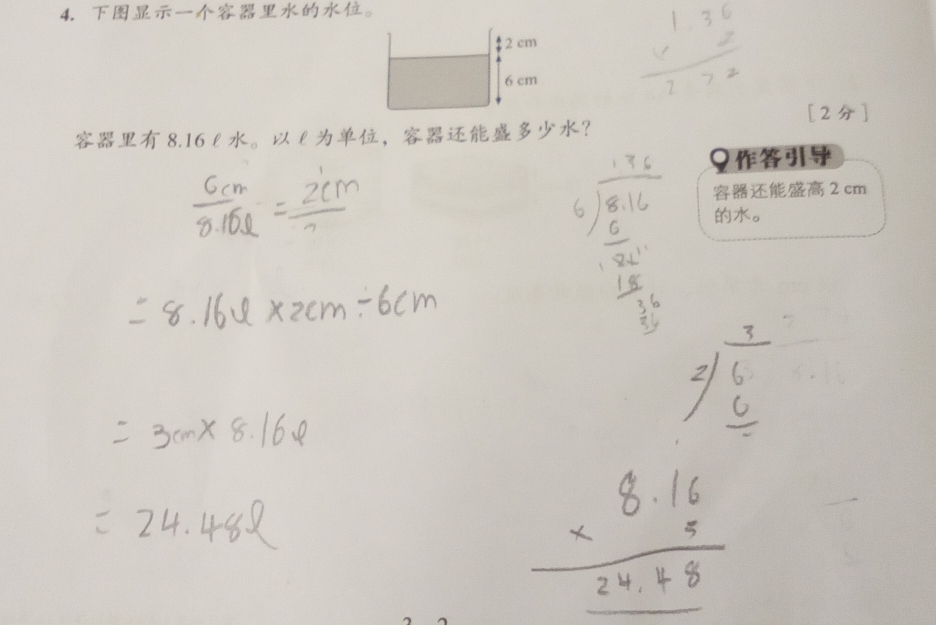 4. 下图显示一个容器里水的水位。
2 cm
6 cm
[2分]
容器里有 8.16 ℓ 水。以 ℓ 为单位，容器还能盛多少水？
作答引导
容器还能盛高 2 cm
的水。
1.36
2
2 7 2
6cm
8.16ℓ
= 2cm
?
= 8.16ℓ × 2cm ÷ 6cm
= 3cm × 8.16ℓ
= 24.48ℓ
136
6 ) 8.16
6
18
36
36
3
2 ) 6
6
8.16
×
24.48